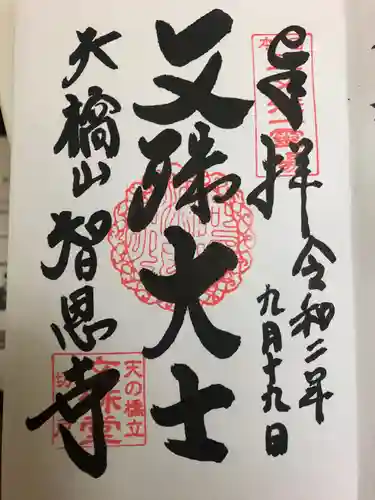 奉拝
令和二年
九月十九日
文殊大士
天橋山智恩寺
天の橋立
文殊堂